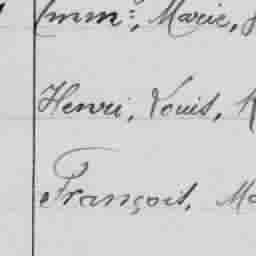 Imm:, Marie,
Henri, Louis,
François, Ma